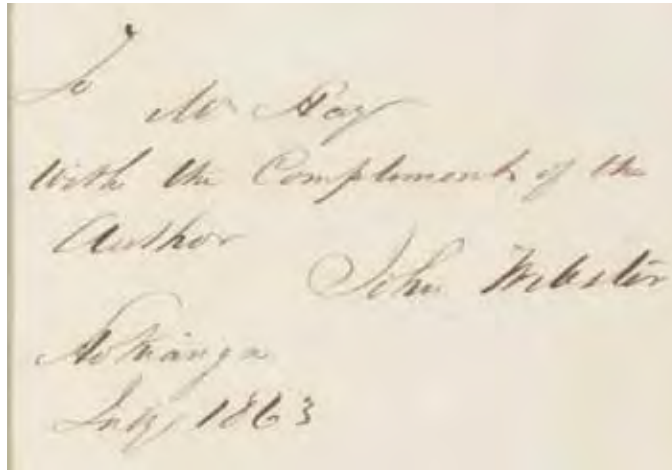 To
Mr Hay
With the Compliments of the
Author
John Webster
Hokianga
July 1863